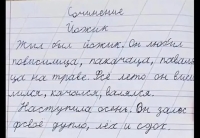 Сочинение
Йожик
Жил был йожик. Он любил
повисица, покачаца, поваля
ца на траве. Всё лето он висе
лился, качался, валялся.
Наступила осень. Он залез
фсвоё дупло, лёх и сдох.